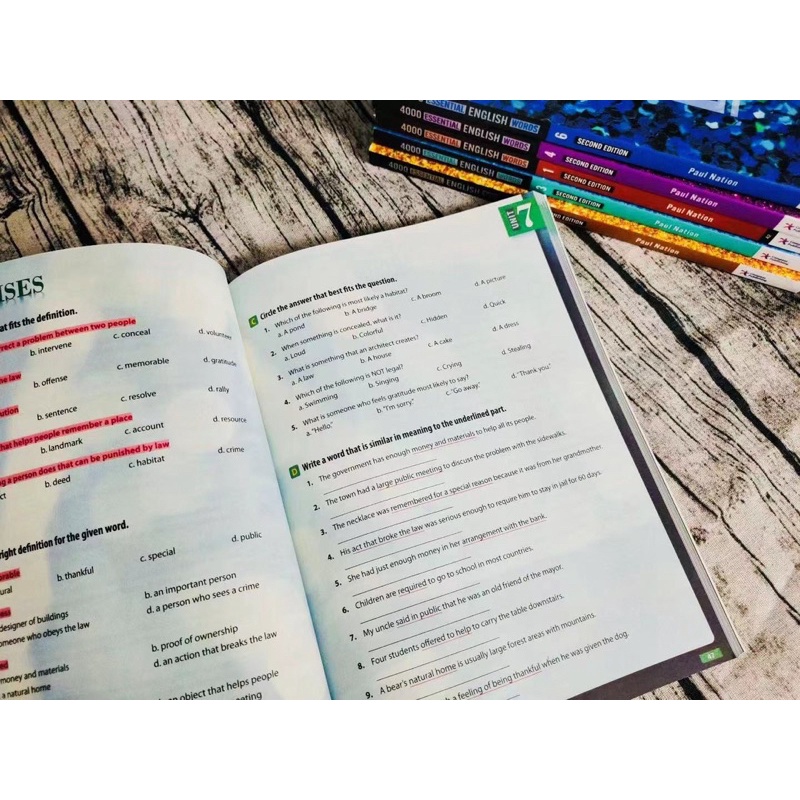 ISES
at fits the definition.
rrect a problem between two people
b. intervene c. conceal d. volunteer
he law
b. offense c. memorable d. gratitude
ution
b. sentence c. resolve d. rally
hat helps people remember a place
b. landmark c. account d. resource
ng a person does that can be punished by law
ct b. deed c. habitat d. crime
right definition for the given word.
orable
ural b. thankful c. special d. public
ess
designer of buildings b. an important person
omeone who obeys the law d. a person who sees a crime
money and materials b. proof of ownership
a natural home d. an action that breaks the law
an object that helps people
UNIT 7
C Circle the answer that best fits the question.
1. Which of the following is most likely a habitat?
a. A pond b. A bridge c. A broom d. A picture
2. When something is concealed, what is it?
a. Loud b. Colorful c. Hidden d. Quick
3. What is something that an architect creates?
a. A law b. A house c. A cake d. A dress
4. Which of the following is NOT legal?
a. Swimming b. Singing c. Crying d. Stealing
5. What is someone who feels gratitude most likely to say?
a. "Hello." b. "I'm sorry." c. "Go away." d. "Thank you"
D Write a word that is similar in meaning to the underlined part.
1. The government has enough money and materials to help all its people.
2. The town had a large public meeting to discuss the problem with the sidewalks.
3. The necklace was remembered for a special reason because it was from her grandmother.
4. His act that broke the law was serious enough to require him to stay in jail for 60 days.
5. She had just enough money in her arrangement with the bank.
6. Children are required to go to school in most countries.
7. My uncle said in public that he was an old friend of the mayor.
8. Four students offered to help to carry the table downstairs.
9. A bear's natural home is usually large forest areas with mountains.
a feeling of being thankful when he was given the dog.
ESSENTIAL ENGLISH WORDS 6 SECOND EDITION Paul Nation
4000 ESSENTIAL ENGLISH WORDS 4 SECOND EDITION Paul Nation
4000 ESSENTIAL ENGLISH WORDS 1 SECOND EDITION Paul Nation
4000 ESSENTIAL ENGLISH WORDS 3 SECOND EDITION Paul Nation
4000 ESSENTIAL ENGLISH EDITION Paul Nation